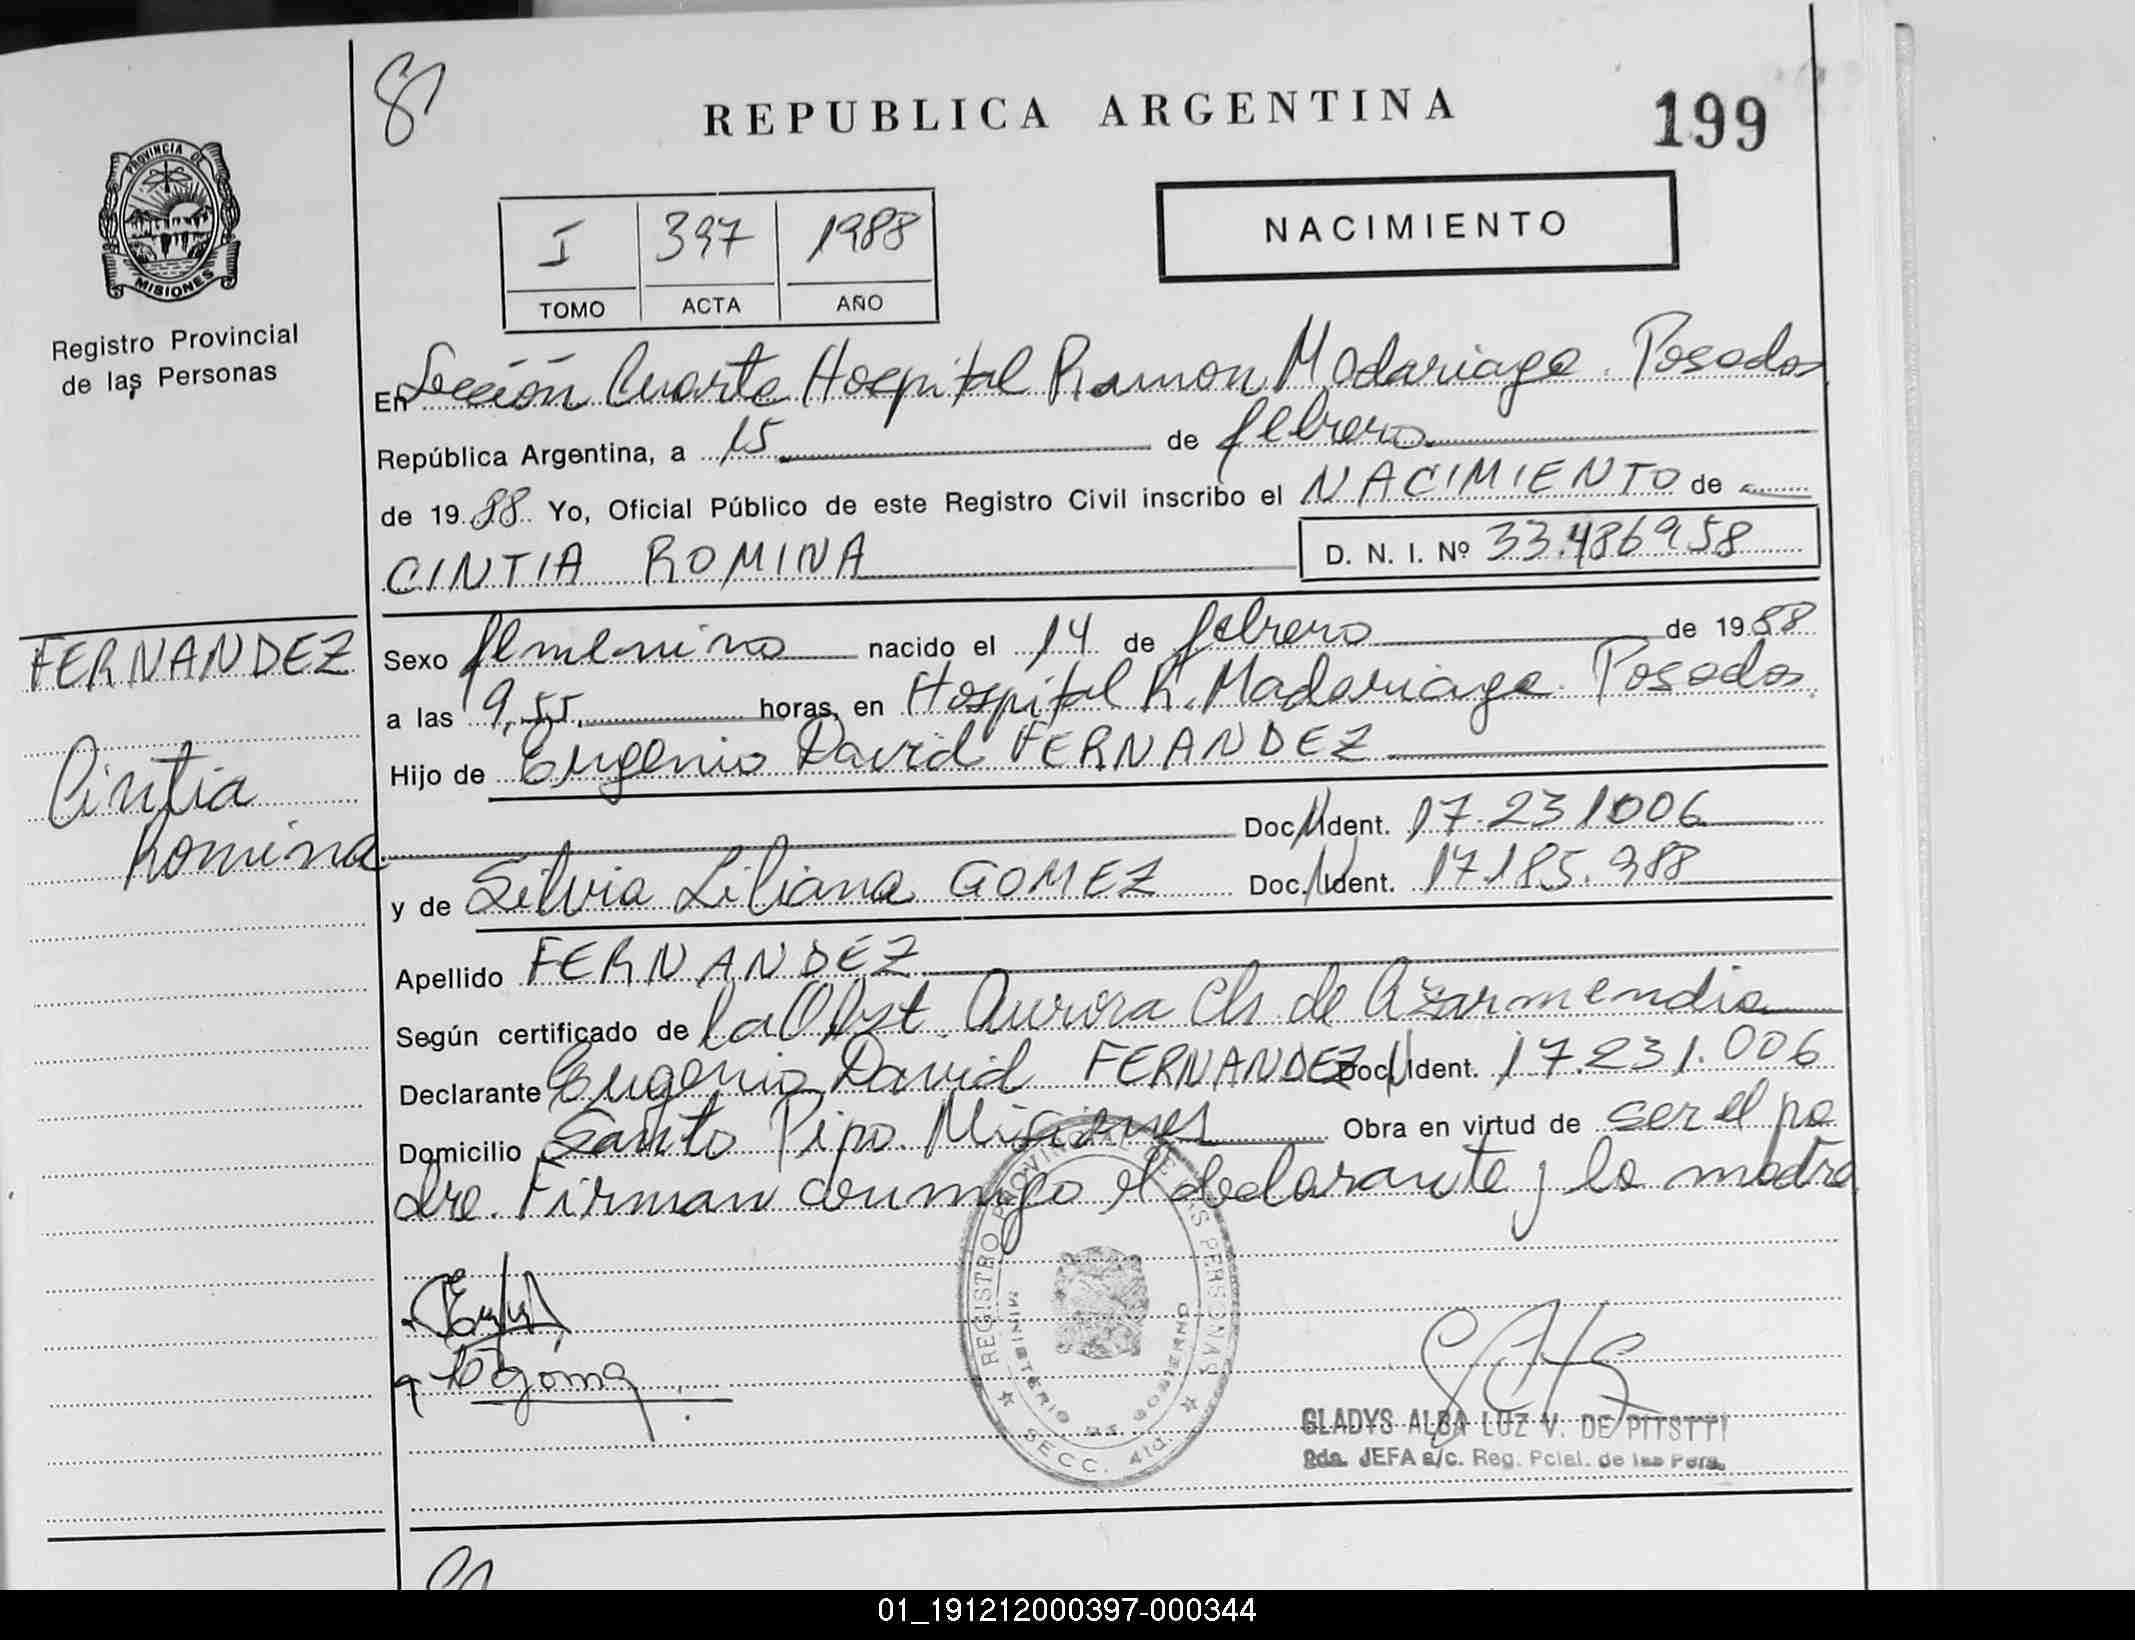 REPUBLICA ARGENTINA
199
PROVINCIA DE
MISIONES
Registro Provincial
de las Personas
NACIMIENTO
I 397 1988
TOMO ACTA AÑO
En Sección Cuarta Hospital Ramon Madariaga. Posadas
República Argentina, a 15 de febrero
de 1988 Yo, Oficial Público de este Registro Civil inscribo el NACIMIENTO de
CINTIA ROMINA D. N. I. Nº 33.486958
FERNANDEZ
Cintia
Romina
Sexo femenino nacido el 14 de febrero de 1988
a las 9,55, horas, en Hospital R. Madariaga. Posadas,
Hijo de Eugenio David FERNANDEZ
Doc. Ident. 17.231006
y de Silvia Liliana GOMEZ Doc. Ident. 17185.988
Apellido FERNANDEZ
Según certificado de la Obst. Aurora Ch. de Azarmendia
Declarante Eugenio David FERNANDEZ Doc. Ident. 17.231.006
Domicilio Santo Pipo. Misiones Obra en virtud de ser el pa
dre. Firman conmigo el declarante y la madre
REGISTRO PROVINCIAL DE LAS PERSONAS
MINISTERIO DE GOBIERNO
SECC. 4ta.
GLADYS ALBA LUZ V. DE PITSTTI
2da. JEFA a/c. Reg. Pcial. de las Pers.
01_191212000397-000344